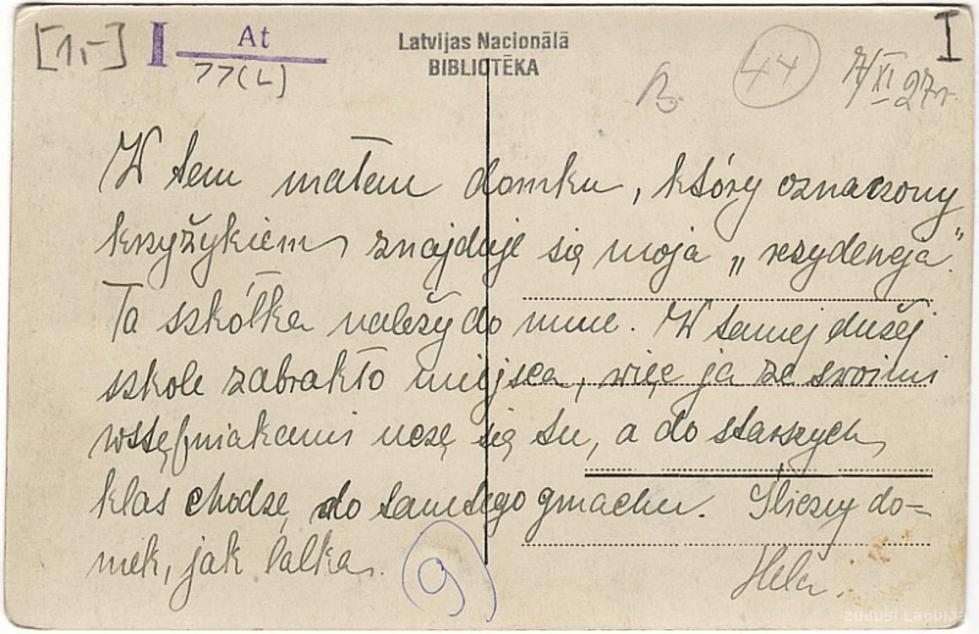 [1,-] I At
77(L)
Latvijas Nacionālā
BIBLIOTĒKA
B.
44
7/XI 27 r.
I
W tem małem domku, który oznaczony
krzyżykiem znajduje się moja „rezydencja".
Ta szkółka należy do mnie. W tamtej dużej
szkole zabrakło miejsca, więc ja ze swoimi
wstępniakami uczę się tu, a do starszych
klas chodzę do tamtego gmachu. Śliczny do-
mek, jak lalka.
Hela.
9
ZUDUSĪ LATVIJA